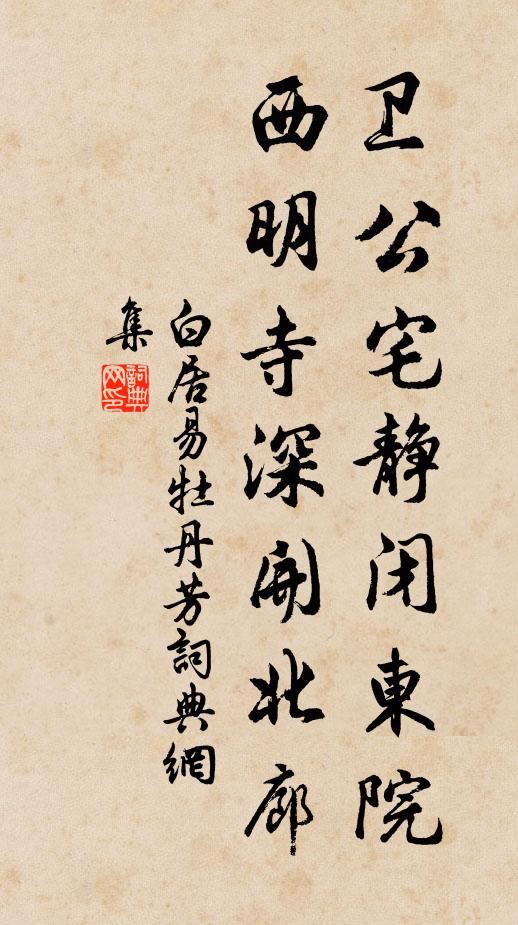 卫公宅静闭東院
西明寺深開北廊
白居易牡丹芳詞典網
集
詞典
网印